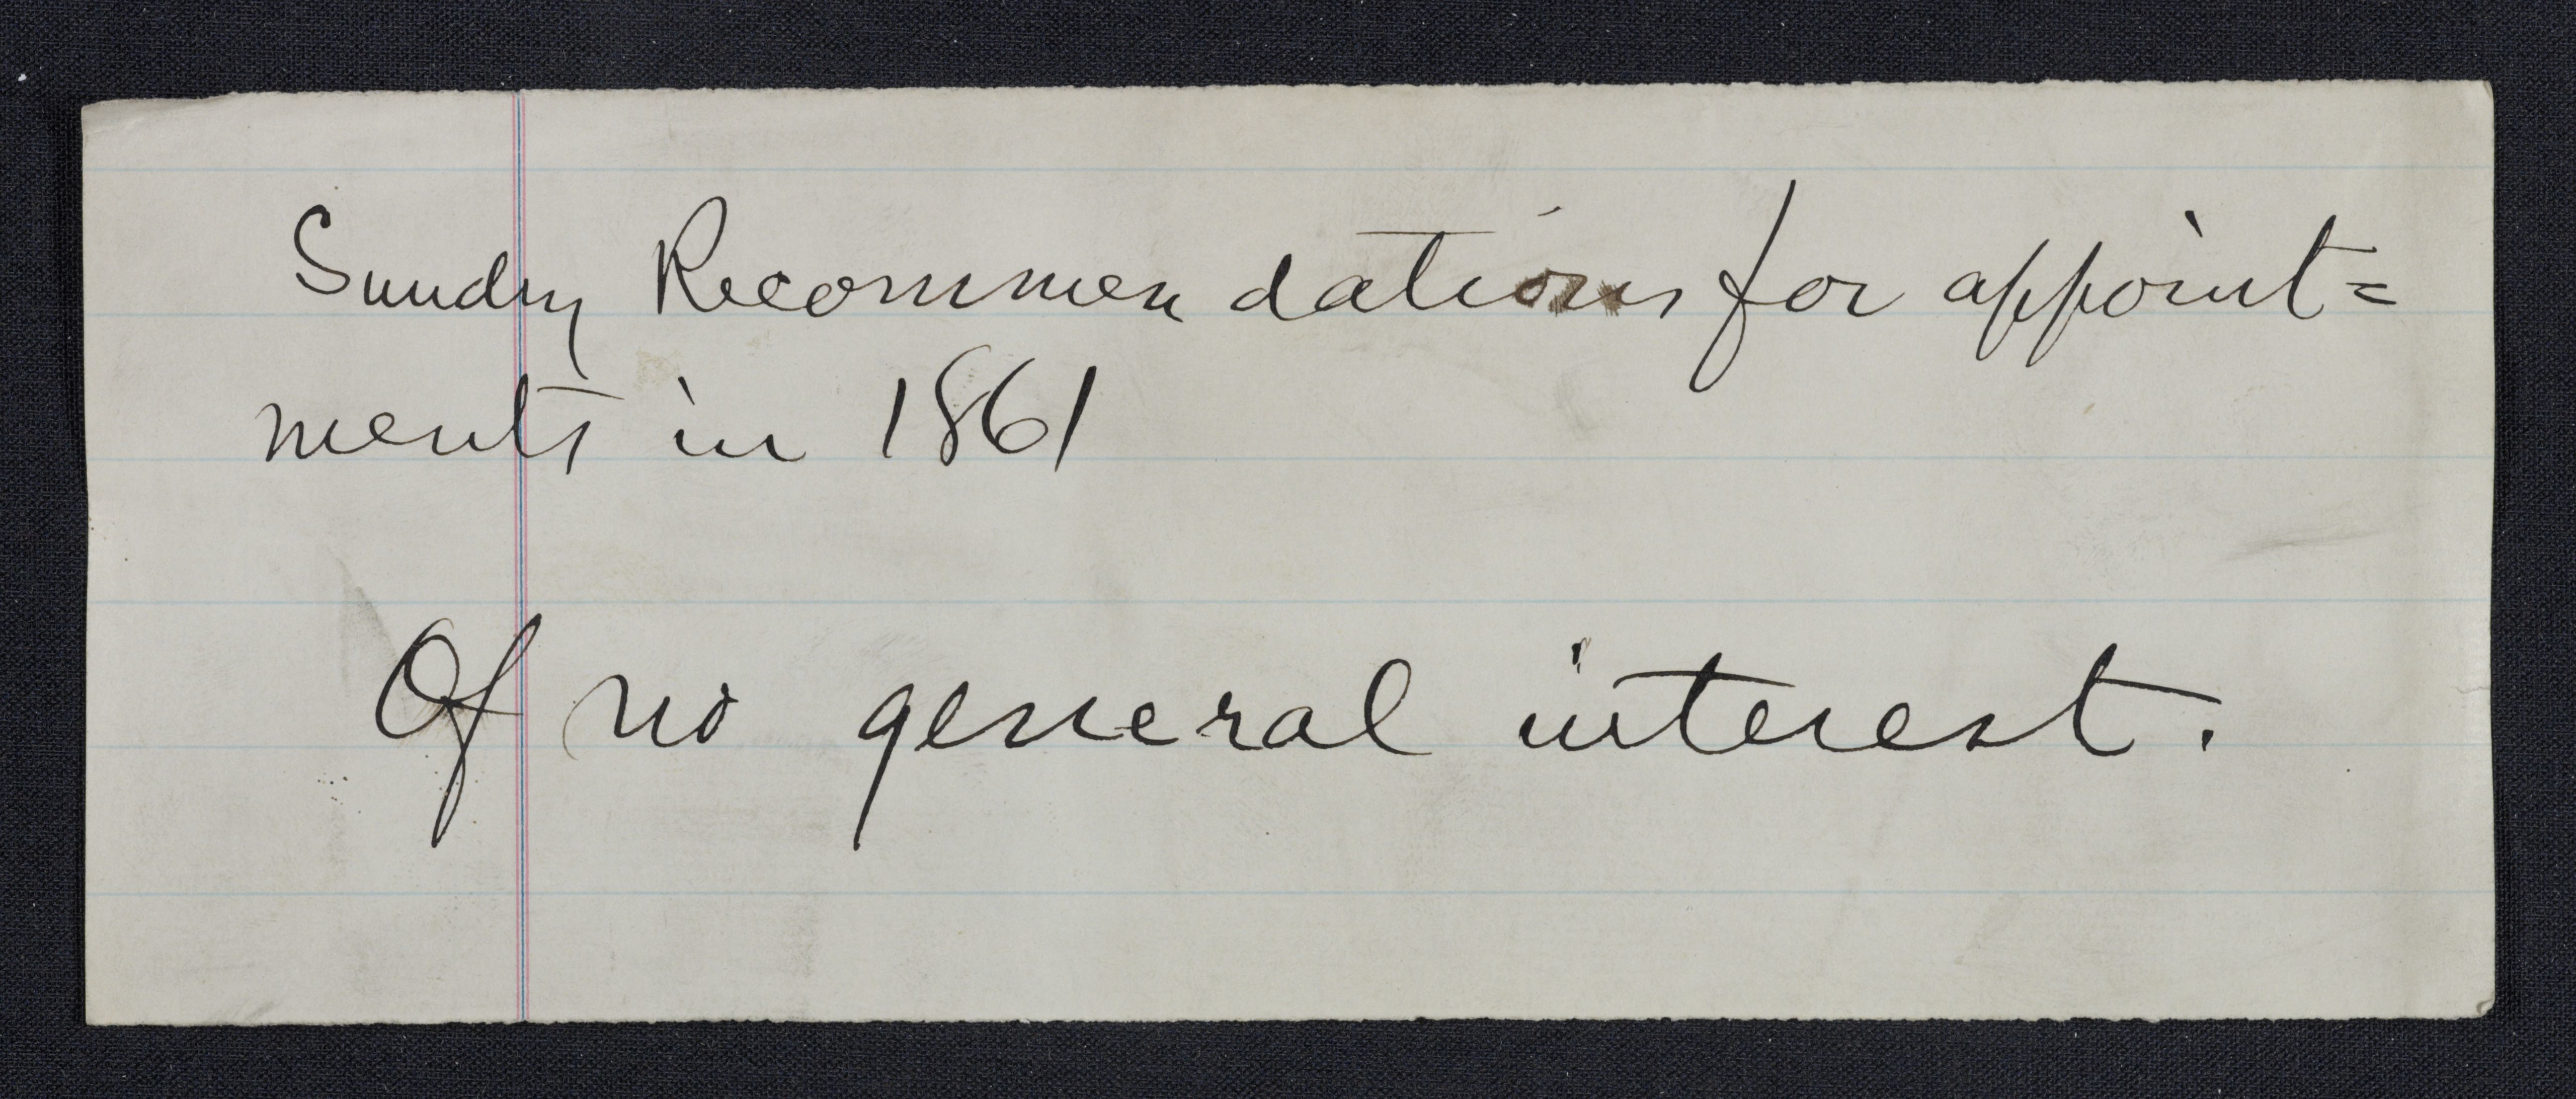 Sundry Recommendations for appoint=
ments in 1861
Of no general interest.